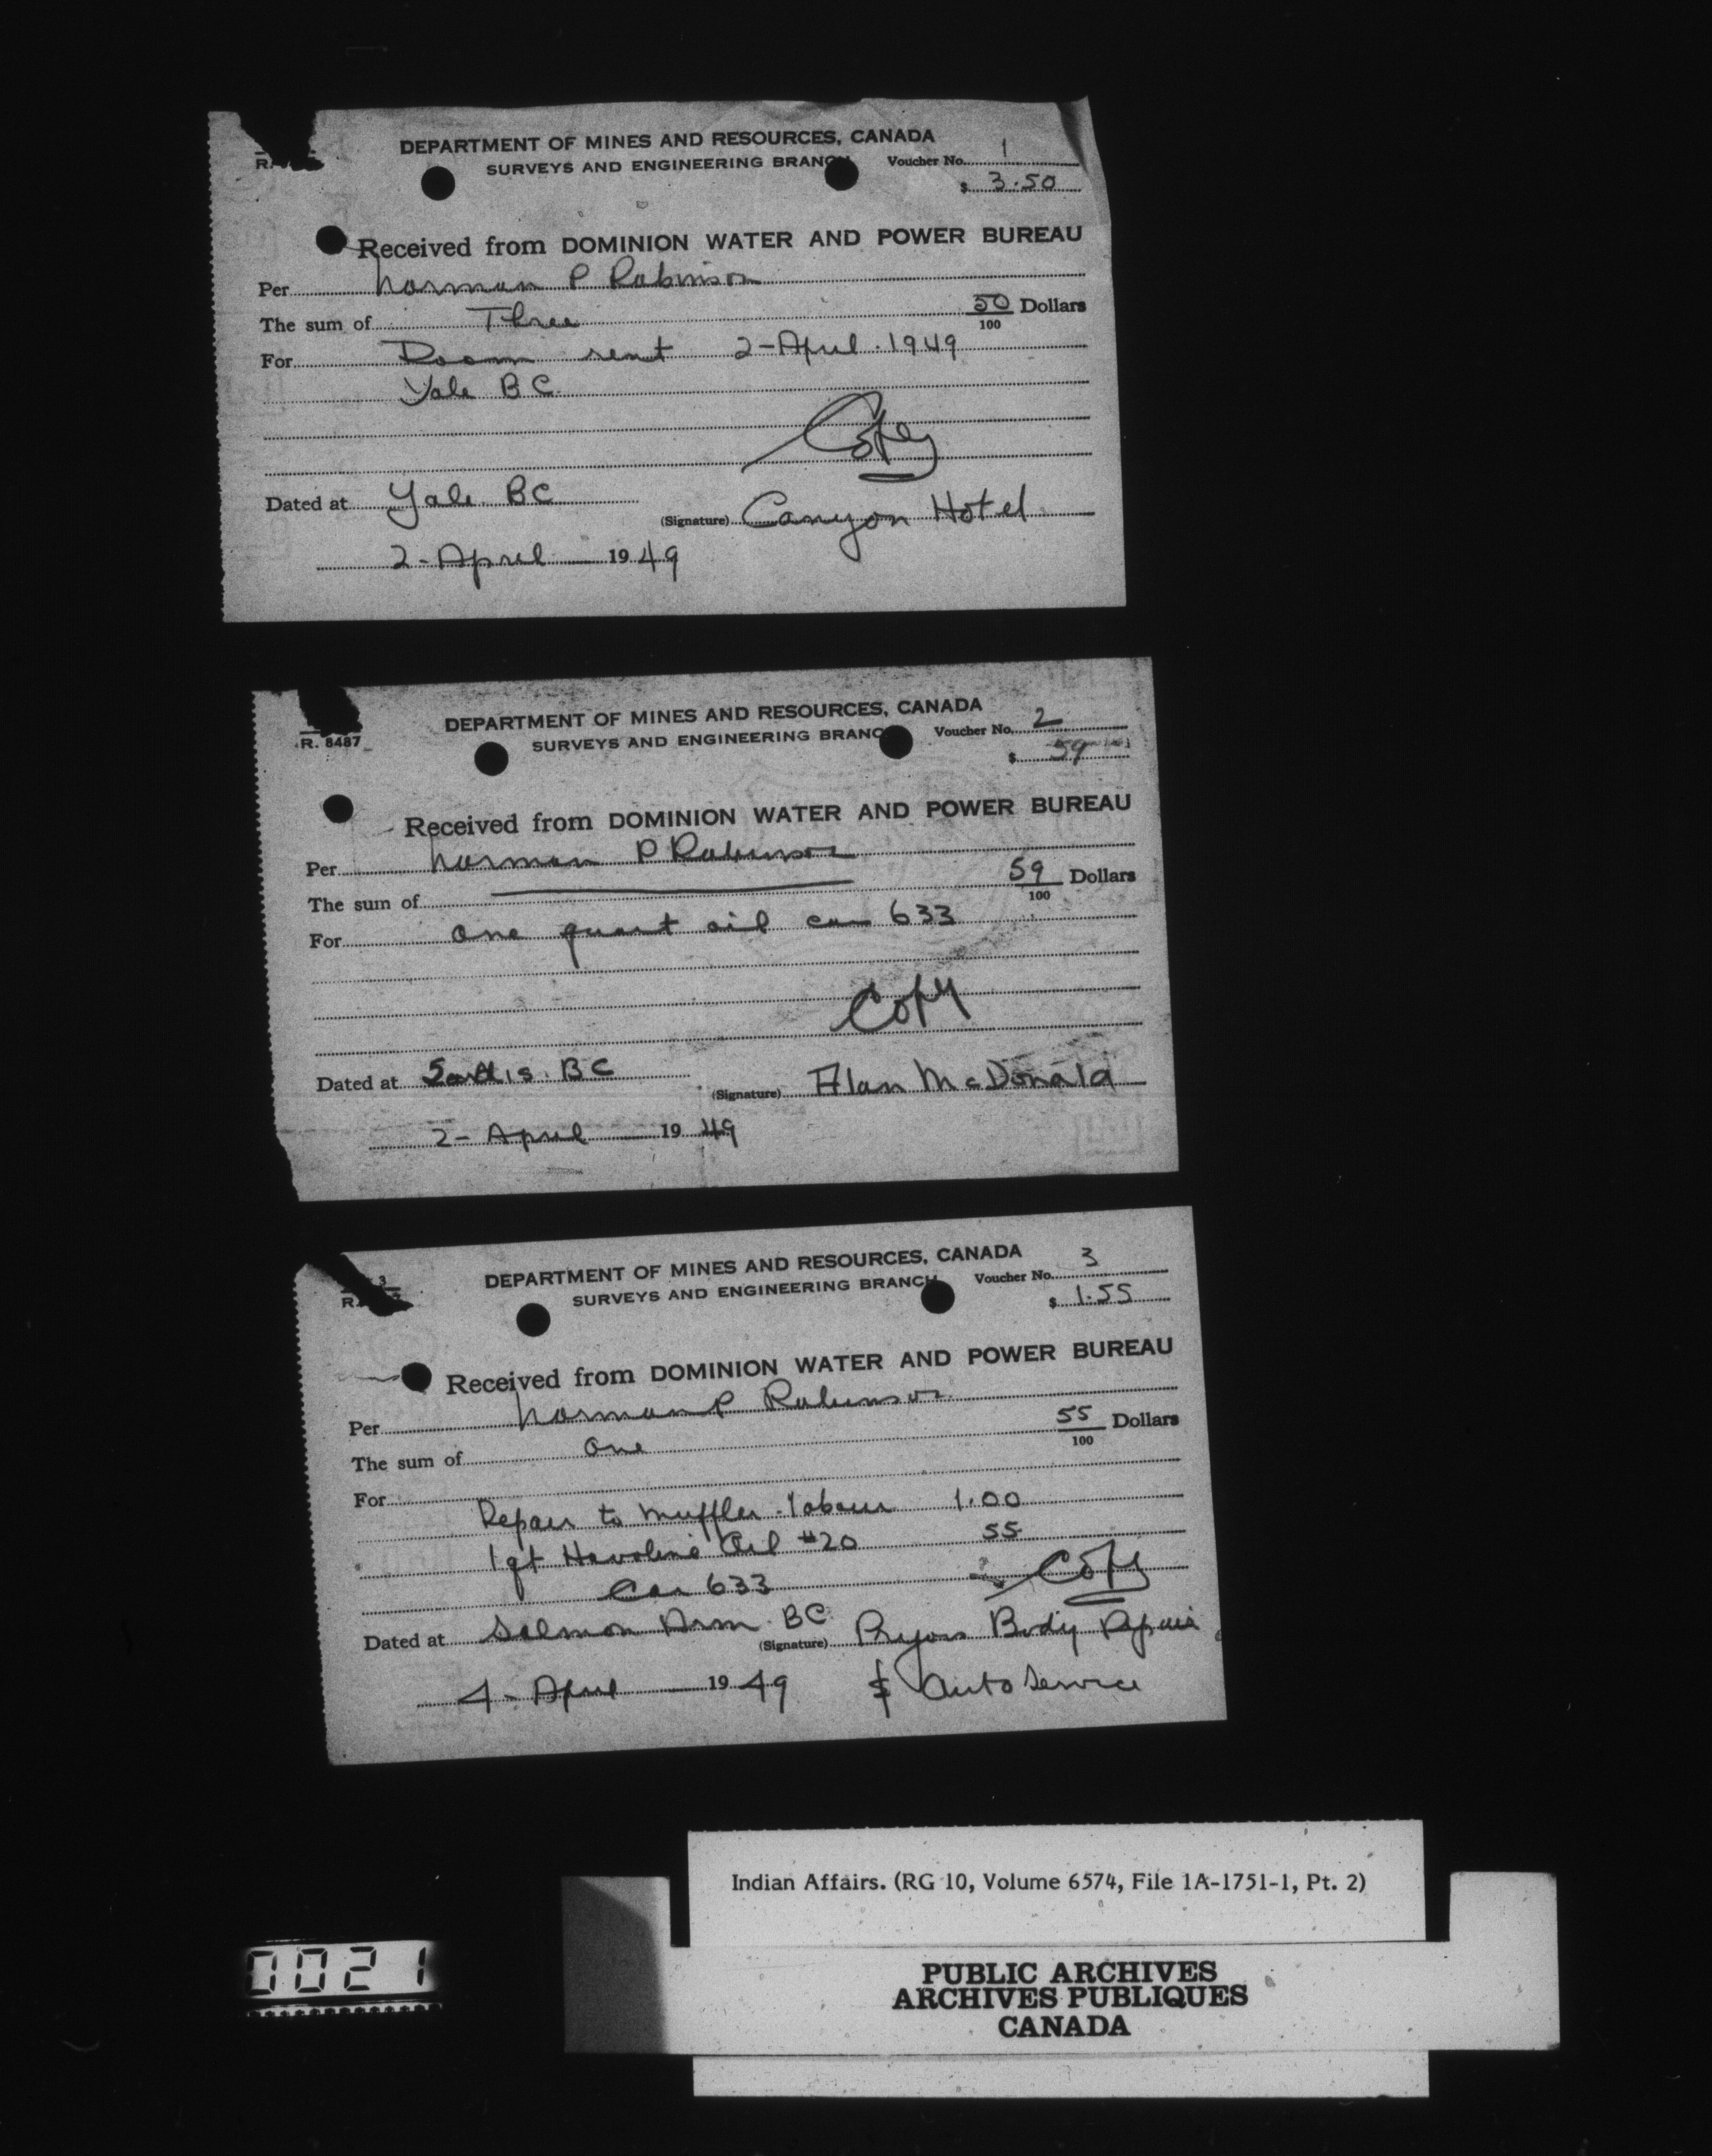 DEPARTMENT OF MINES AND RESOURCES, CANADA
SURVEYS AND ENGINEERING BRANCH
Voucher No. 1
$ 3.50
Received from DOMINION WATER AND POWER BUREAU
Per Norman P Robinson
The sum of Three 50/100 Dollars
For Room rent 2-April.1949
Yale BC
Copy
Dated at Yale BC
(Signature) Canyon Hotel
2-April 1949
R. 8487
DEPARTMENT OF MINES AND RESOURCES, CANADA
SURVEYS AND ENGINEERING BRANCH
Voucher No. 2
$ 59
Received from DOMINION WATER AND POWER BUREAU
Per Norman P Robinson
The sum of 59/100 Dollars
For One quart oil car 633
Copy
Dated at Sardis BC
(Signature) Alan McDonald
2-April 1949
3
R.
DEPARTMENT OF MINES AND RESOURCES, CANADA
SURVEYS AND ENGINEERING BRANCH
Voucher No. 3
$ 1.55
Received from DOMINION WATER AND POWER BUREAU
Per Norman P Robinson
The sum of One 55/100 Dollars
For
Repair to muffler-labour 1.00
1 qt Havoline Oil #20 55
Car 633
Copy
Dated at Salmon Arm BC
(Signature) Pryors Body Repair
4-April 1949
& Auto Service
Indian Affairs. (RG 10, Volume 6574, File 1A-1751-1, Pt. 2)
0021
PUBLIC ARCHIVES
ARCHIVES PUBLIQUES
CANADA